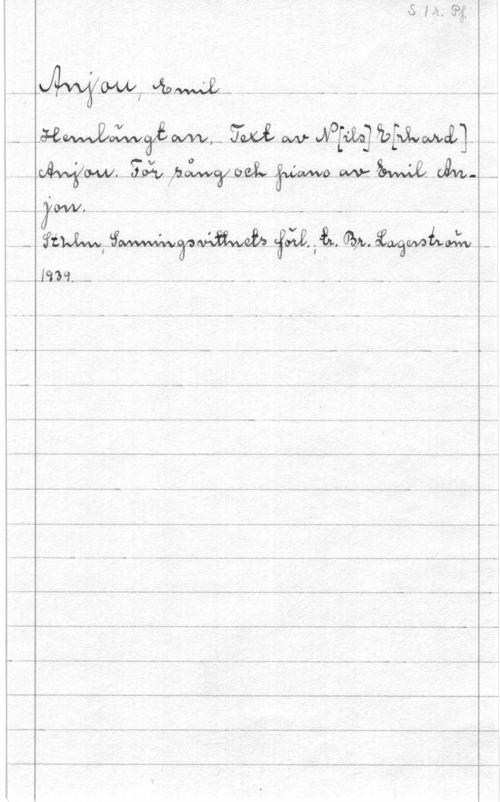 S 1 r. Pf.
Anjou, Emil
Hemlängtan. Text av N[ils] E[rhard]
Anjou. För sång och piano av Emil An-
jou.
Sthlm, Sanningsvittnets förl.; tr. Br. Lagerström
1939.